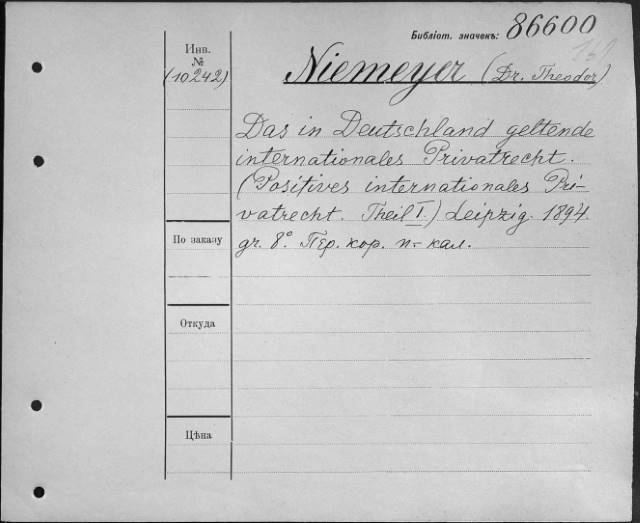 Библіот. значекъ: 86600
Инв.
№
(10242)
Niemeyer (Dr. Theodor)
Das in Deutschland geltende
internationales Privatrecht.
(Positives internationales Pri-
vatrecht. Theil I.) Leipzig. 1894.
gr. 8° Пер. кор. п-кал.
По заказу
Откуда
Цѣна